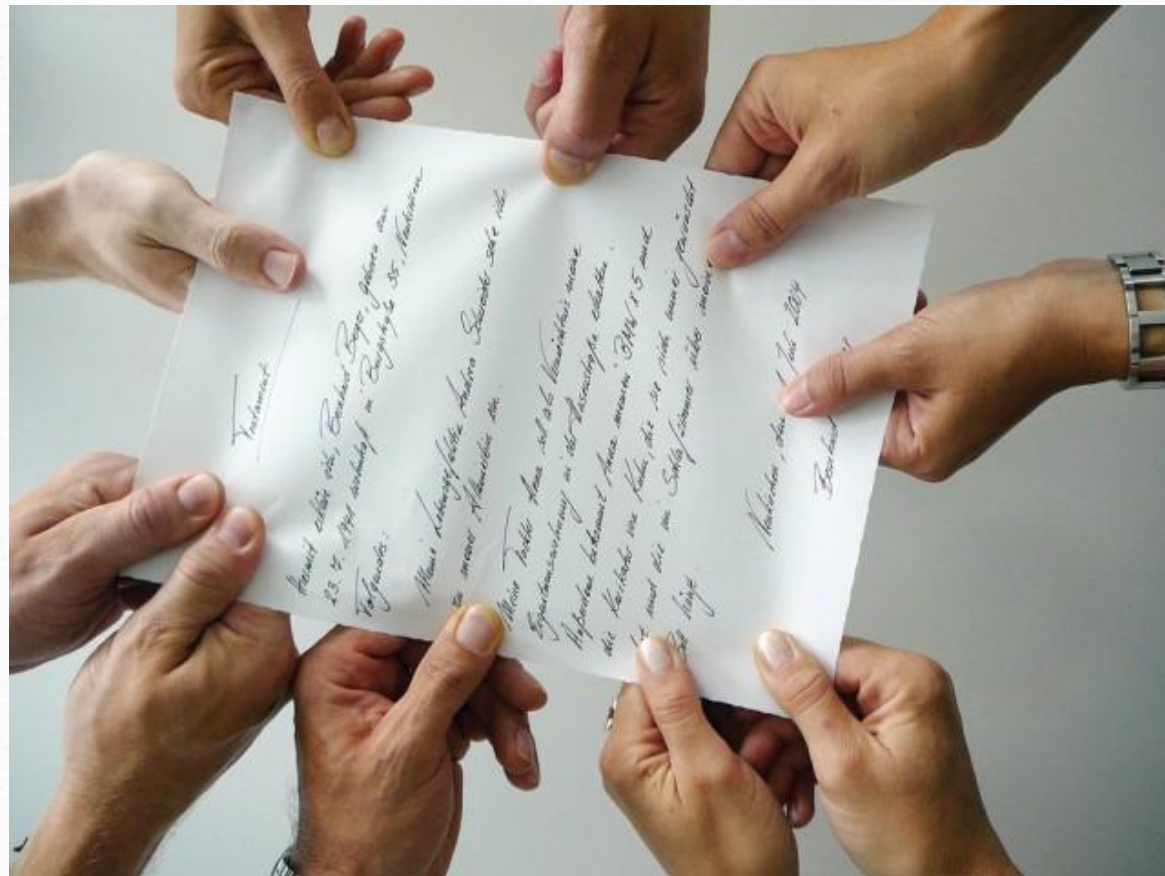 Testament
Hiermit erkläre ich, Bernhard Berger, geboren am
23. 7. 1941 wohnhaft in Burgstraße 35, Neukirchen
Folgendes:
Meine Lebensgefährtin Andrea Schneider setze ich
zu meiner Alleinerbin ein.
Meine Tochter Anna soll als Vermächtnis meine
Eigentumswohnung in der Hasestraße erhalten.
Außerdem bekommt Anna meinen BMW X5 und
die Karikatur von Kuhn, die sie sich immer gewünscht
und die im Schlafzimmer über meinem
hängt.
Neukirchen, den Juli 2004